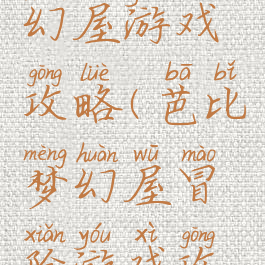 幻屋游戏
gōng lüè bā bǐ
攻略(芭比
mèng huàn wū mào
梦幻屋冒
xiǎn yóu xì gōng
险游戏攻